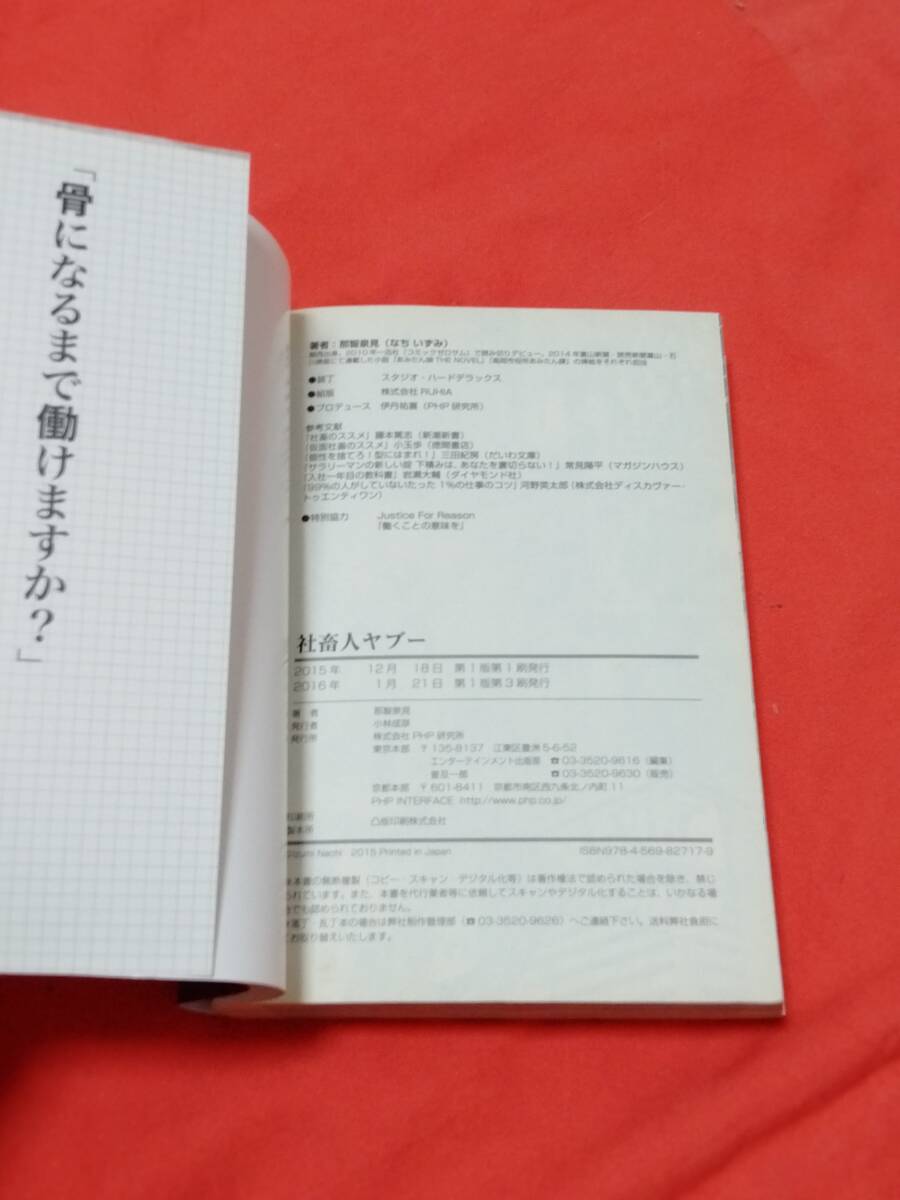 「骨になるまで働けますか?」
著者:那智泉見(なち いずみ)
関西出身。2010年一迅社「コミックゼロサム」で読み切りデビュー。2014年富山新聞・読売新聞富山・石
川県版にて連載した小説「あみたん娘 THE NOVEL」「高岡市役所あみたん課」の挿絵をそれぞれ担当
●装丁 スタジオ・ハードデラックス
●組版 株式会社 RUHIA
●プロデュース 伊丹祐喜(PHP 研究所)
参考文献
「社畜のススメ」藤本篤志(新潮新書)
「仮面社畜のススメ」小玉歩(徳間書店)
「個性を捨てろ!型にはまれ!」三田紀房(だいわ文庫)
「サラリーマンの新しい掟 下積みは、あなたを裏切らない!」常見陽平(マガジンハウス)
「入社一年目の教科書」岩瀬大輔(ダイヤモンド社)
「99%の人がしていないたった 1%の仕事のコツ」河野英太郎(株式会社ディスカヴァー・
トゥエンティワン)
●特別協力 Justice For Reason
「働くことの意味を」
社畜人ヤブー
2015年 12月 18日 第1版第1刷発行
2016年 1月 21日 第1版第3刷発行
著者 那智泉見
発行者 小林成彦
発行所 株式会社 PHP 研究所
東京本部 〒135-8137 江東区豊洲 5-6-52
エンターテインメント出版部 ☎03-3520-9616(編集)
普及一部 ☎03-3520-9630(販売)
京都本部 〒601-8411 京都市南区西九条北ノ内町 11
PHP INTERFACE http://www.php.co.jp/
印刷所
製本所 凸版印刷株式会社
Izumi Nachi 2015 Printed in Japan ISBN978-4-569-82717-9
※本書の無断複製(コピー・スキャン・デジタル化等)は著作権法で認められた場合を除き、禁じ
られています。また、本書を代行業者等に依頼してスキャンやデジタル化することは、いかなる場
合でも認められておりません。
※落丁・乱丁本の場合は弊社制作管理部(☎03-3520-9626)へご連絡下さい。送料弊社負担に
てお取り替えいたします。